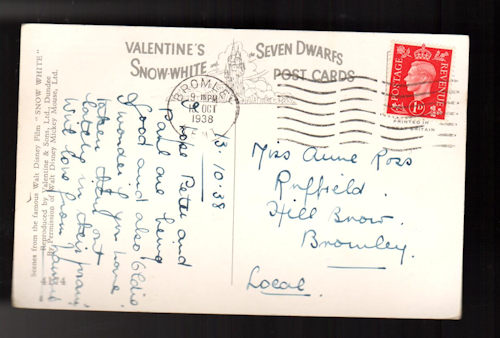 VALENTINE'S
SNOW-WHITE AND THE SEVEN DWARFS
POST CARDS
BROMLEY
9 PM
OCT
1938
POSTAGE
REVENUE
1D
PRINTED IN
GREAT BRITAIN
Scenes from the famous Walt Disney Film "SNOW WHITE"
Reproduced by Valentine & Sons, Ltd., Dundee
By Permission of Walt Disney Mickey Mouse, Ltd.
13.10.38
I hope Peter and
are being
good and also
I wonder if you have
taken them out
lately
With love from
Miss Anne Ross
Ruffield
Hill Brow
Bromley.
Local.